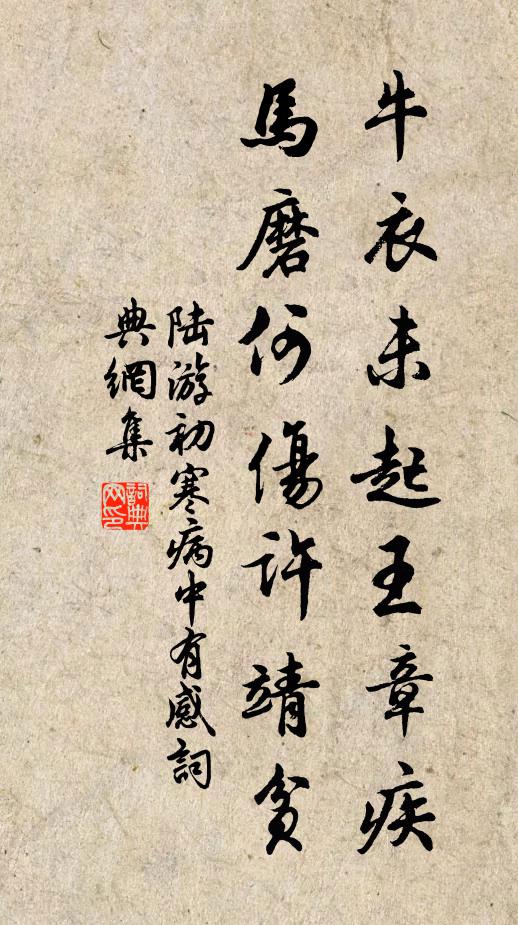 牛衣未起王章疾
馬磨何傷許靖貧
陆游初寒病中有感詞
典網集
詞典
网印